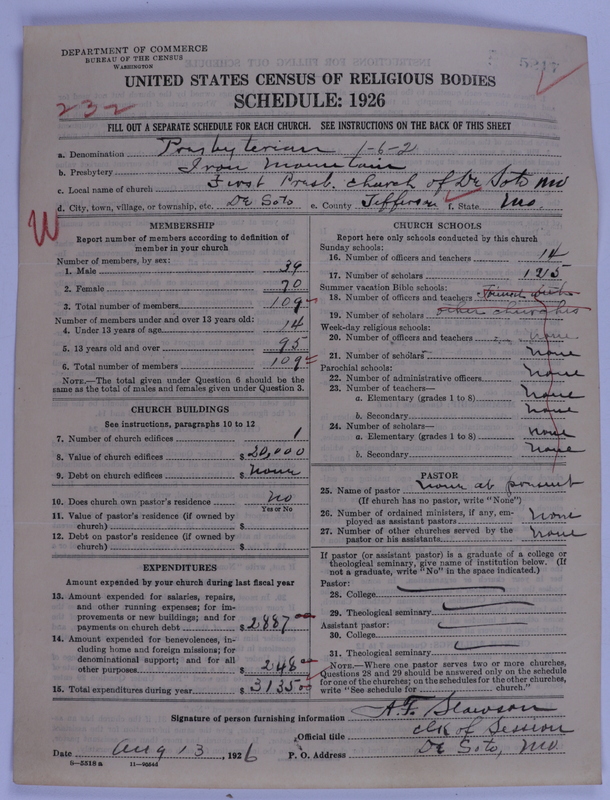 DEPARTMENT OF COMMERCE
BUREAU OF THE CENSUS
WASHINGTON
UNITED STATES CENSUS OF RELIGIOUS BODIES
SCHEDULE: 1926
232
FILL OUT A SEPARATE SCHEDULE FOR EACH CHURCH. SEE INSTRUCTIONS ON THE BACK OF THIS SHEET
a. Denomination Presbyterian 1-6-2
b. Presbytery Iron Mountain
c. Local name of church First Presb. church of De Soto Mo
d. City, town, village, or township, etc. De Soto e. County Jefferson f. State Mo.
W
MEMBERSHIP
Report number of members according to definition of
member in your church
Number of members, by sex:
1. Male 39
2. Female 70
3. Total number of members 109
Number of members under and over 13 years old:
4. Under 13 years of age 14
5. 13 years old and over 95
6. Total number of members 109
NOTE.—The total given under Question 6 should be
the same as the total of males and females given under Question 3.
CHURCH BUILDINGS
See instructions, paragraphs 10 to 12
7. Number of church edifices 1
8. Value of church edifices $ 20,000
9. Debt on church edifices $ None
10. Does church own pastor's residence No
Yes or No
11. Value of pastor's residence (if owned by
church) $
12. Debt on pastor's residence (if owned by
church) $
EXPENDITURES
Amount expended by your church during last fiscal year
13. Amount expended for salaries, repairs,
and other running expenses; for im-
provements or new buildings; and for
payments on church debt $ 2887
14. Amount expended for benevolences, in-
cluding home and foreign missions; for
denominational support; and for all
other purposes $ 248
15. Total expenditures during year $ 3135
CHURCH SCHOOLS
Report here only schools conducted by this church
Sunday schools:
16. Number of officers and teachers 14
17. Number of scholars 125
Summer vacation Bible schools:
18. Number of officers and teachers
19. Number of scholars other churches
Week-day religious schools:
20. Number of officers and teachers none
21. Number of scholars None
Parochial schools:
22. Number of administrative officers None
23. Number of teachers—
a. Elementary (grades 1 to 8) None
b. Secondary None
24. Number of scholars—
a. Elementary (grades 1 to 8) None
b. Secondary None
PASTOR
25. Name of pastor None at present
(If church has no pastor, write "None")
26. Number of ordained ministers, if any, em-
ployed as assistant pastors None
27. Number of other churches served by the
pastor or his assistants None
If pastor (or assistant pastor) is a graduate of a college or
theological seminary, give name of institution below. (If
not a graduate, write "No" in the space indicated.)
Pastor:
28. College
29. Theological seminary
Assistant pastor:
30. College
31. Theological seminary
NOTE.—Where one pastor serves two or more churches,
Questions 28 and 29 should be answered only on the schedule
for one of the churches; on the schedules for the other churches,
write "See schedule for church."
Signature of person furnishing information A. F. Slawson
Official title Clk of Session
Date Aug 13, 1926 P. O. Address De Soto, Mo.
8—5518 a